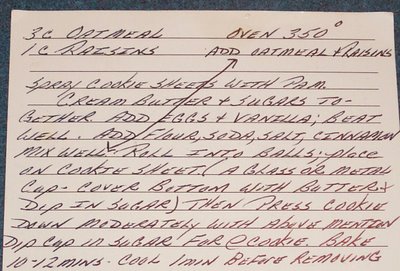 3C OATMEAL OVEN 350°
1C RAISINS ADD OATMEAL & RAISINS
SPRAY COOKIE SHEETS WITH PAM.
CREAM BUTTER & SUGARS TO-
GETHER ADD EGGS & VANILLA; BEAT
WELL. ADD FLOUR, SODA, SALT, CINNAMON
MIX WELL - ROLL INTO BALLS; PLACE
ON COOKIE SHEET. (A GLASS OR METAL
CUP - COVER BOTTOM WITH BUTTER &
DIP IN SUGAR) THEN PRESS COOKIE
DOWN MODERATELY WITH ABOVE MENTION
DIP CUP IN SUGAR FOR @ COOKIE. BAKE
10-12 MINS. COOL 1 MIN BEFORE REMOVING